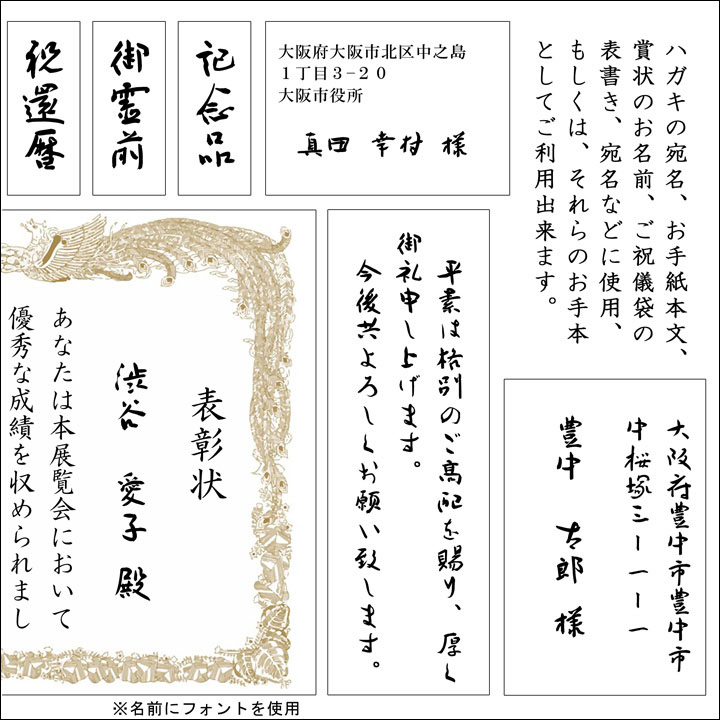 ハガキの宛名、お手紙本文、
賞状のお名前、ご祝儀袋の
表書き、宛名などに使用、
もしくは、それらのお手本
としてご利用出来ます。
大阪府大阪市北区中之島
１丁目３−２０
大阪市役所
真田 幸村 様
記念品
御霊前
祝還暦
平素は格別のご高配を賜り、厚く
御礼申し上げます。
今後共よろしくお願い致します。
大阪府豊中市豊中市
中桜塚三ー一ー一
豊中 太郎 様
表彰状
渋谷 愛子 殿
あなたは本展覧会において
優秀な成績を収められまし
※名前にフォントを使用